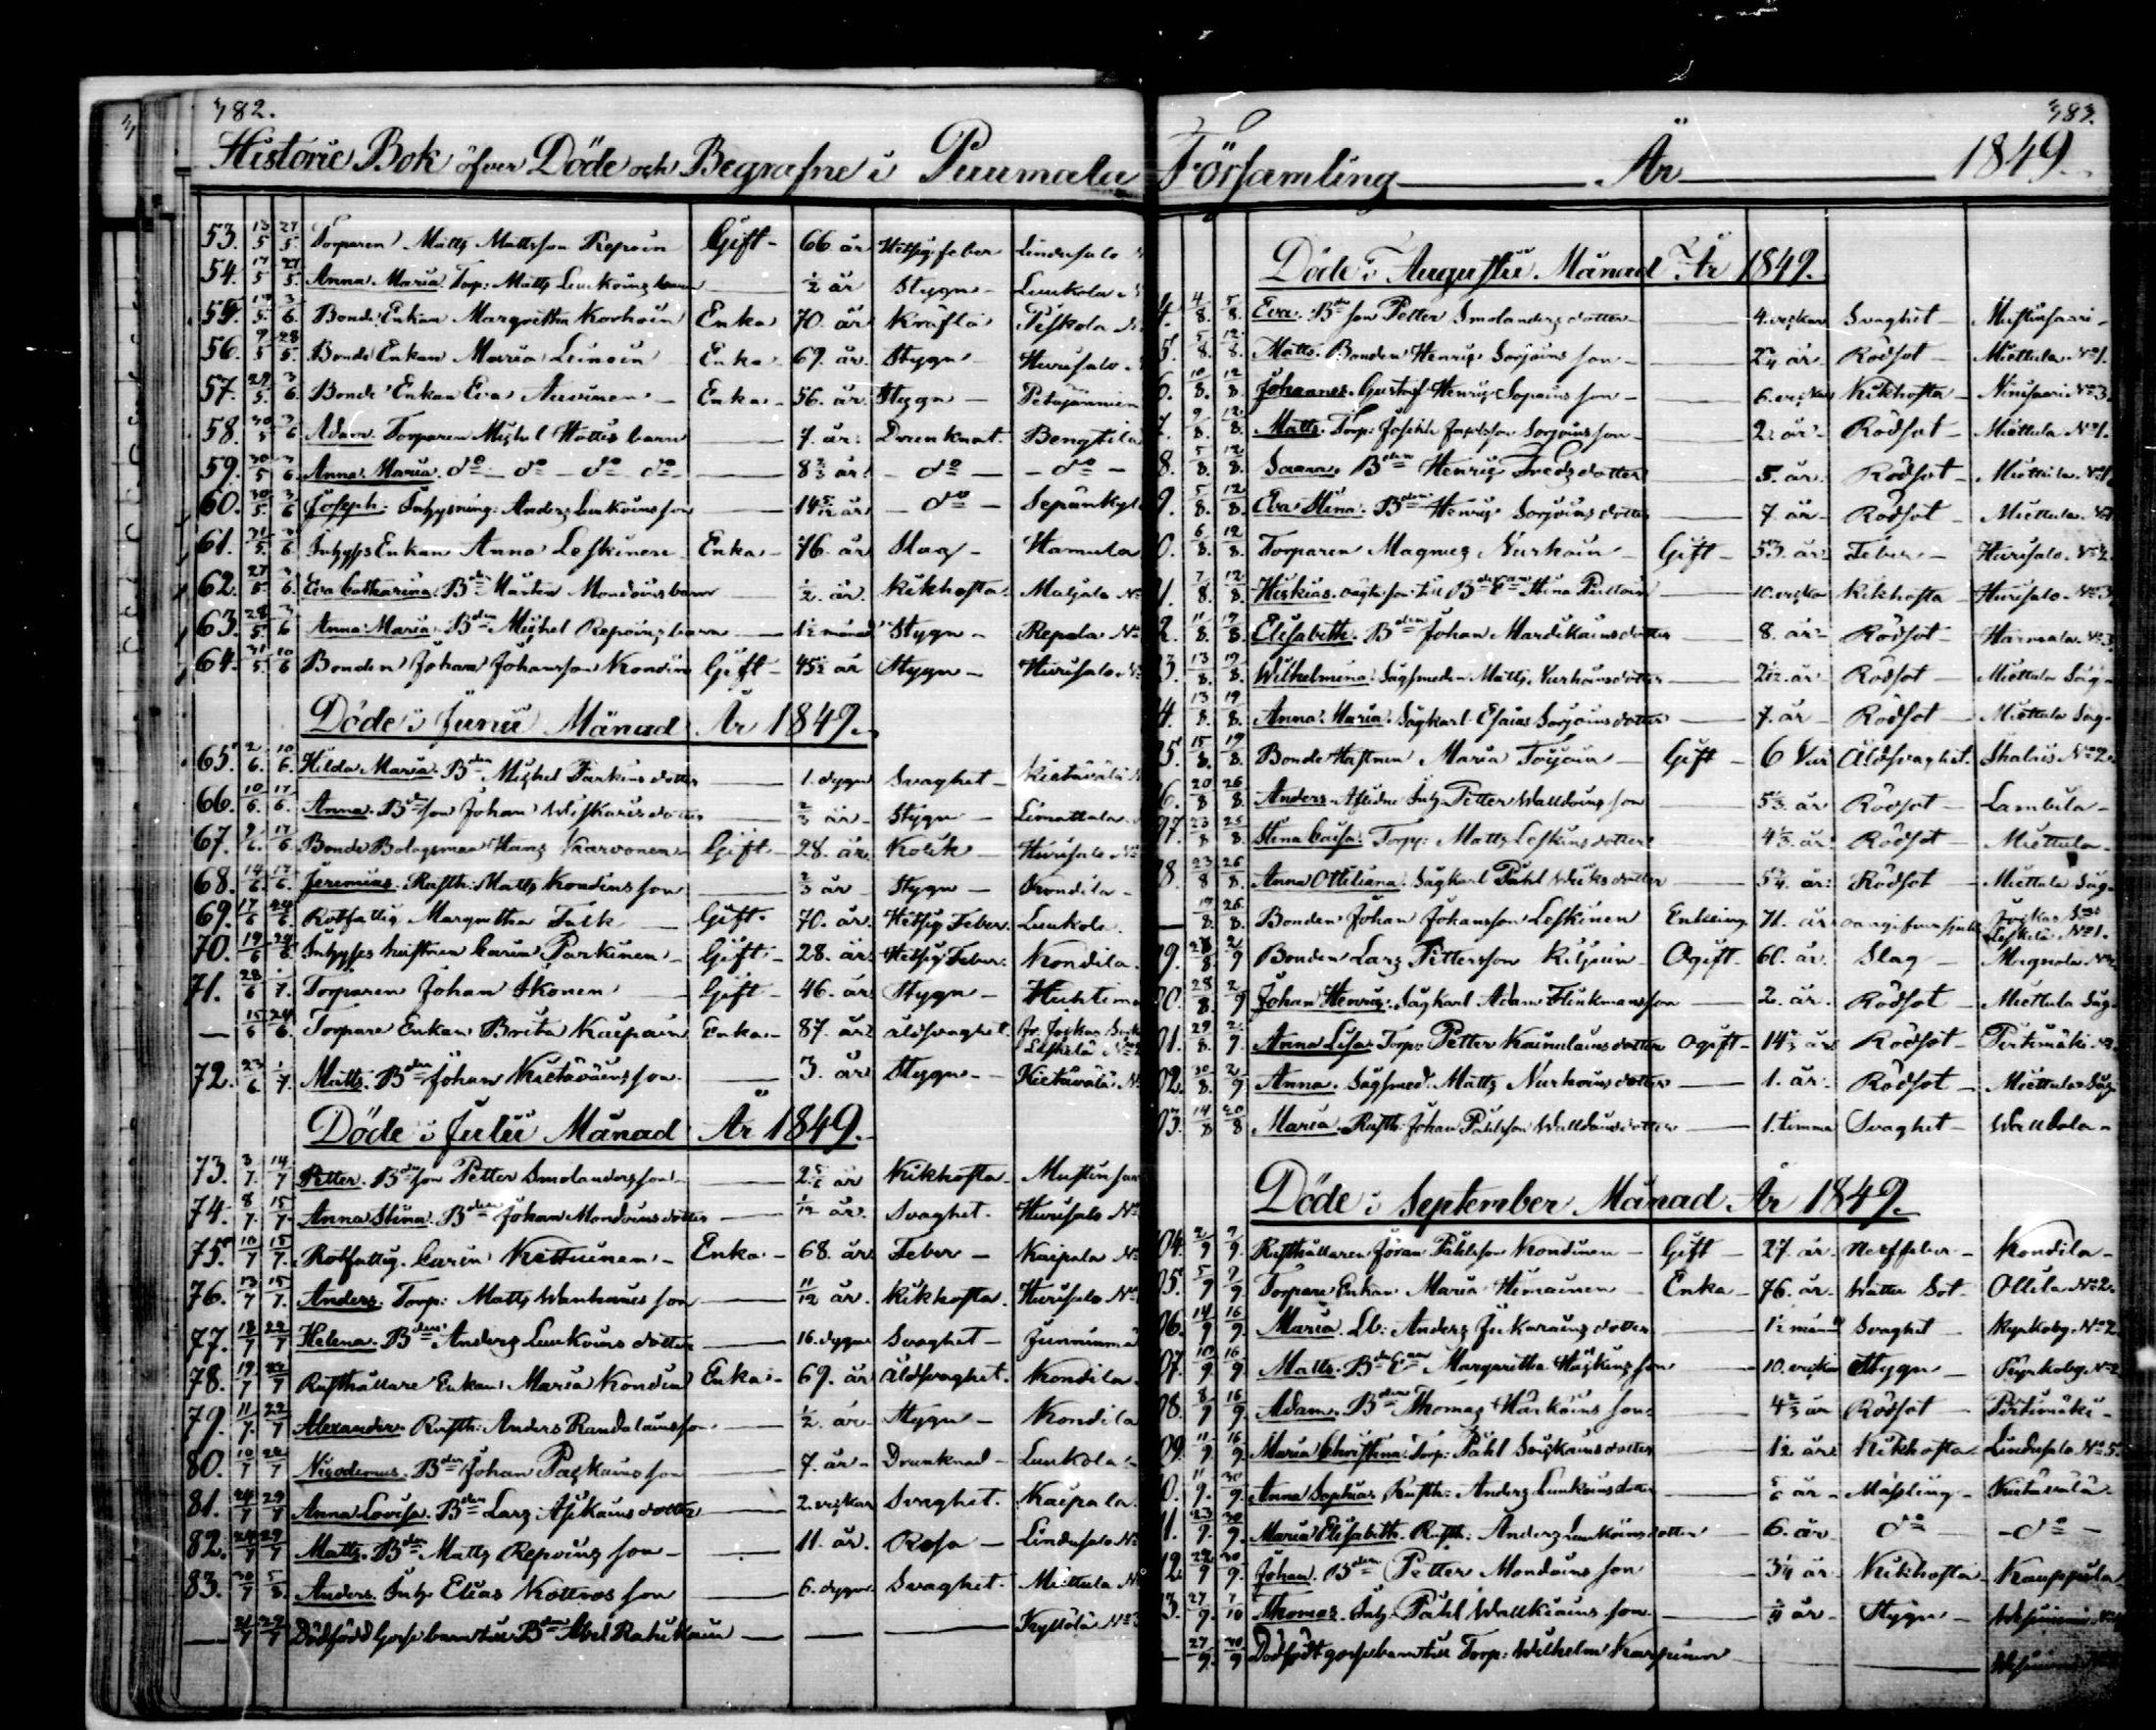 382.
Historie Bok öfver Döde och Begrafne i Puumala
53. 13/5 27/5. Torparen Matts Mattsson Repoin Gift - 66 år Hetsig feber Lindusalo
54. 17/5 27/5. Anna Maria Torp: Matts Luukoins barn 1/2 år Stygn - Luukola
55. 3/6. Bonde Enkan Margretha Korhoin Enka 70. år Kräfta Piskola
56. 9/5 28/5. Bonde Enkan Maria Leinoin Enka 69. år. Stygn - Hurisalo
57. 29/5. 3/6. Bonde Enkan Eva Auvinen - Enka - 56. år. Stygn - Petäjäniemi
58. 30/5 3/6 Adam. Torparen Michel Hottis barn 7. år. Drunknat. Bengtila
59. 30/5 3/6 Anna Maria. do - do - do do 8 2/3 år. - do - - do -
60. 30/5. 3/6 Joseph: Inhysning: Anders Luukoins son 14 5/12 år - do - Sepänkyl
61. 31/5. 3/6 Inhyses Enkan Anna Leskinen Enka - 76. år Slag - Hamula
62. 27/5. 3/6. Eva Catharina. Bden Mårten Mondoins barn 1/2. år. Kikhosta. Matjala No
63. 28/5. 3/6 Anna Maria. Bden Michel Repoins barn 1 1/2 månad Stygn - Repola No
64. 31/5. 10/6 Bonden Johan Johansson Kondin Gift - 45 1/2 år Stygn - Hurisalo
Döde i Junii Månad År 1849.
65. 2/6. 10/6. Hilda Maria. Bden Michel Parkins dotter 1. dygn Svaghet - Kietävälä
66. 10/6. 17/6. Anna. Bdeson Johan Wiskaris dotter 2/3 år - Stygn - Limattala
67. 9/6. 17/6. Bonde Bolagsman Hans Karvonen - Gift - 28. år. Kolik - Hurisalo No
68. 14/6. 17/6. Jeremias. Rusth: Matts Kondins son 2/3 år Stygn - Kondila -
69. 17/6 24/6. Rotfattig Margretha Falk Gift. 70. år. Hetsig Feber. Luukola.
70. 19/6 24/6. Inhyses hustrun Carin Parkinen - Gift - 28. år. Hetsig Feber. Kondila.
71. 28/6 1/7. Torparen Johan Ikonen Gift - 46. år Stygn -
— 15/6 24/6. Torpare Enkan Brita Kaipain Enka - 87. år. åldsvaghet. fr. Jockas Sock Leskelä No
72. 23/6 1/7. Matts. Bden Johan Kietäväins son. 3. år Stygn - Kietävälä. No
Döde i Julii Månad År 1849.
73. 3/7. 14/7 Petter. Bdeson Petter Smolanders son 2 5/6 år Kikhosta - Mustinsaar
74. 8/7. 15/7. Anna Stina. Bden Johan Mondoins dotter 1/12 år. Svaghet. Hurisalo No
75. 10/7 15/7. Rotfattig. Carin Kettuinen - Enka - 68. år Feber - Kaipala No
76. 13/7 15/7. Anders. Torp: Matts Wanhanens son 11/12 år. Kikhosta. Hurisalo No
77. 18/7 22/7 Helena. Bden Anders Luukoins dotter 16. dygn Svaghet - Junninmä
78. 19/7 22/7 Rusthållare Enkan Maria Kondin Enka - 69. år åldsvaghet. Kondila.
79. 11/7. 22/7 Alexander. Rusth: Anders Randalains son 1/2. år. Stygn - Kondila
80. 10/7 22/7 Nicodemus. Bden Johan Packains son 7. år - Drunknad - Luukola
81. 24/7 29/7 Anna Lovisa. Bden Lars Asikains dotter 2. veckor Svaghet. Kaipala.
82. 24/7 29/7 Matts. Bden Matts Repoins son - 11. år. Rosa - Lindusalo No
83. 30/7 5/8. Anders. Inh. Elias Kottros son 6. dygn Svaghet. Miettula No
— 21/7 29/7 Dödfödd Gosse barn till Bden Abel Rahikain Kyllölä No 3
383.
Församling År 1849.
Döde i Augustii Månad År 1849.
4. 4/8. 5/8. Eva. Bdeson Petter Smolanders dotter 4. veckor Svaghet - Mustinsaari -
5. 5/8. 12/8. Matts. Bonden Henrics Sorjoins son - 2 3/4 år. Rödsot - Miettula No 1.
6. 10/8. 12/8. Johannes. Gustaf Henrics Sopains son - 6. veckor Kikhosta - Niinisaari No 3.
7. 9/8. 12/8. Matts. Torp: Joseph Josephsson Sorjoins son - 2. år. Rödsot - Miettula No 1.
8. 5/8. 12/8. Sanna. Bden Henrics Freds dotter 5. år. Rödsot - Miettula. No 1.
9. 5/8. 12/8. Eva Stina. Bden Henrics Sorjoins dotter 7. år - Rödsot - Miettula.
0. 6/8. 12/8. Torparen Magnus Nurhoin - Gift - 53. år. Feber - Hurisalo. No 2.
1. 7/8. 12/8. Hiskias. oägta son till Bde Ean Stina 10. veckor Kikhosta Hurisalo. No 3.
2. 11/8. 19/8. Elisabeth. Bden Johan Mardikains dotter 8. år - Rödsot - Harmala. No 3
3. 13/8. 19/8. Wilhelmina. Sågsmeden Matts Nurhoins dotter 2 1/12. år - Rödsot - Miettula Såg -
4. 13/8. 19/8. Anna Maria. Sågkarl Esaias Sorjoins dotter 7. år Rödsot - Miettula Såg -
5. 15/8. 19/8. Bonde Hustrun Maria Toijoin Gift - Åldsvaghet. No 2.
6. 20/8 26/8. Anders. Aflidne Inh. Petter Walldoins son 5 1/3. år Rödsot - Lambila -
97. 23/8 26/8. Stina Caisa. Torp: Matts Leskins dotter 4 1/3. år. Rödsot - Miettula -
8. 23/8 26/8. Anna Ottiliana. Sågkarl Påhl dotter 5 3/4. år: Rödsot - Miettula Såg -
— 19/8. 26/8. Bonden Johan Johansson Leskinen Enkling 71. år. Jockas Sns Leskelä No 1.
9. 28/8. 2/9 Bonden Lars Pettersson Kiljuin - Ogift - 60. år. Slag - Magnola
00. 28/8. 2/9 Johan Henrics. Sågkarl Adam Flinkmans son 2. år. Rödsot - Miettula Såg
01. 29/8. 2/9. Anna Lisa. Torp: Petter Kainulains dotter Ogift - 14 2/3 år Rödsot - Pirtimäki
02. 30/8. 2/9 Anna. Sågsmed. Matts Nurhoins dotter 1. år. Rödsot - Miettula Såg
03. 14/8 20/8 Maria. Rusth: Johan Påhlsson Walldoins dotter 1. timma Svaghet - Walldola -
Döde i September Månad År 1849.
04. 2/9 9/9. Rusthållaren Jöran Påhlsson Kondinen - Gift - 27. år. Nerffeber - Kondila -
05. 5/9 9/9 Torpare Enkan Maria Himainen - Enka - 76. år. Watter Sot - Ollila No 2.
06. 14/9 16/9. Maria. Lb: Anders Jukarains dotter 1 1/2 mån Svaghet - Kyrkoby. No 2
07. 10/9. 16/9 Matts. Bde Ean Margaretha son 10. veckor Stygn - Kyrkoby. No 2
08. 8/9 16/9. Adam. Bden Thomas Härköins son 4 2/3 år Rödsot - Pirtimäki -
09. 11/9 16/9. Maria Christina. Torp: Påhl dotter 1 1/2. år. Kikhosta Lindusalo No 5.
0. 11/9. 30/9. Anna Sophia. Rusth: Anders Luukoins dotter 5/6 år - Mässling - Kietävälä.
1. 23/9. 30/9. Maria Elisabeth. Rusth: Anders Luukoins dotter 6. år. do - do -
12. 22/9 30/9. Johan. Bden Petter Mondoins son 3 1/4 år. Kikhosta - Kauppila
3. 27/9. 7/10 Thomas. Inh. Påhl Wallkiains son 1/4 år - Stygn -
— 27/9. 30/9 Dödfödt gosse barn till Torp: Wilhelm Karpinen